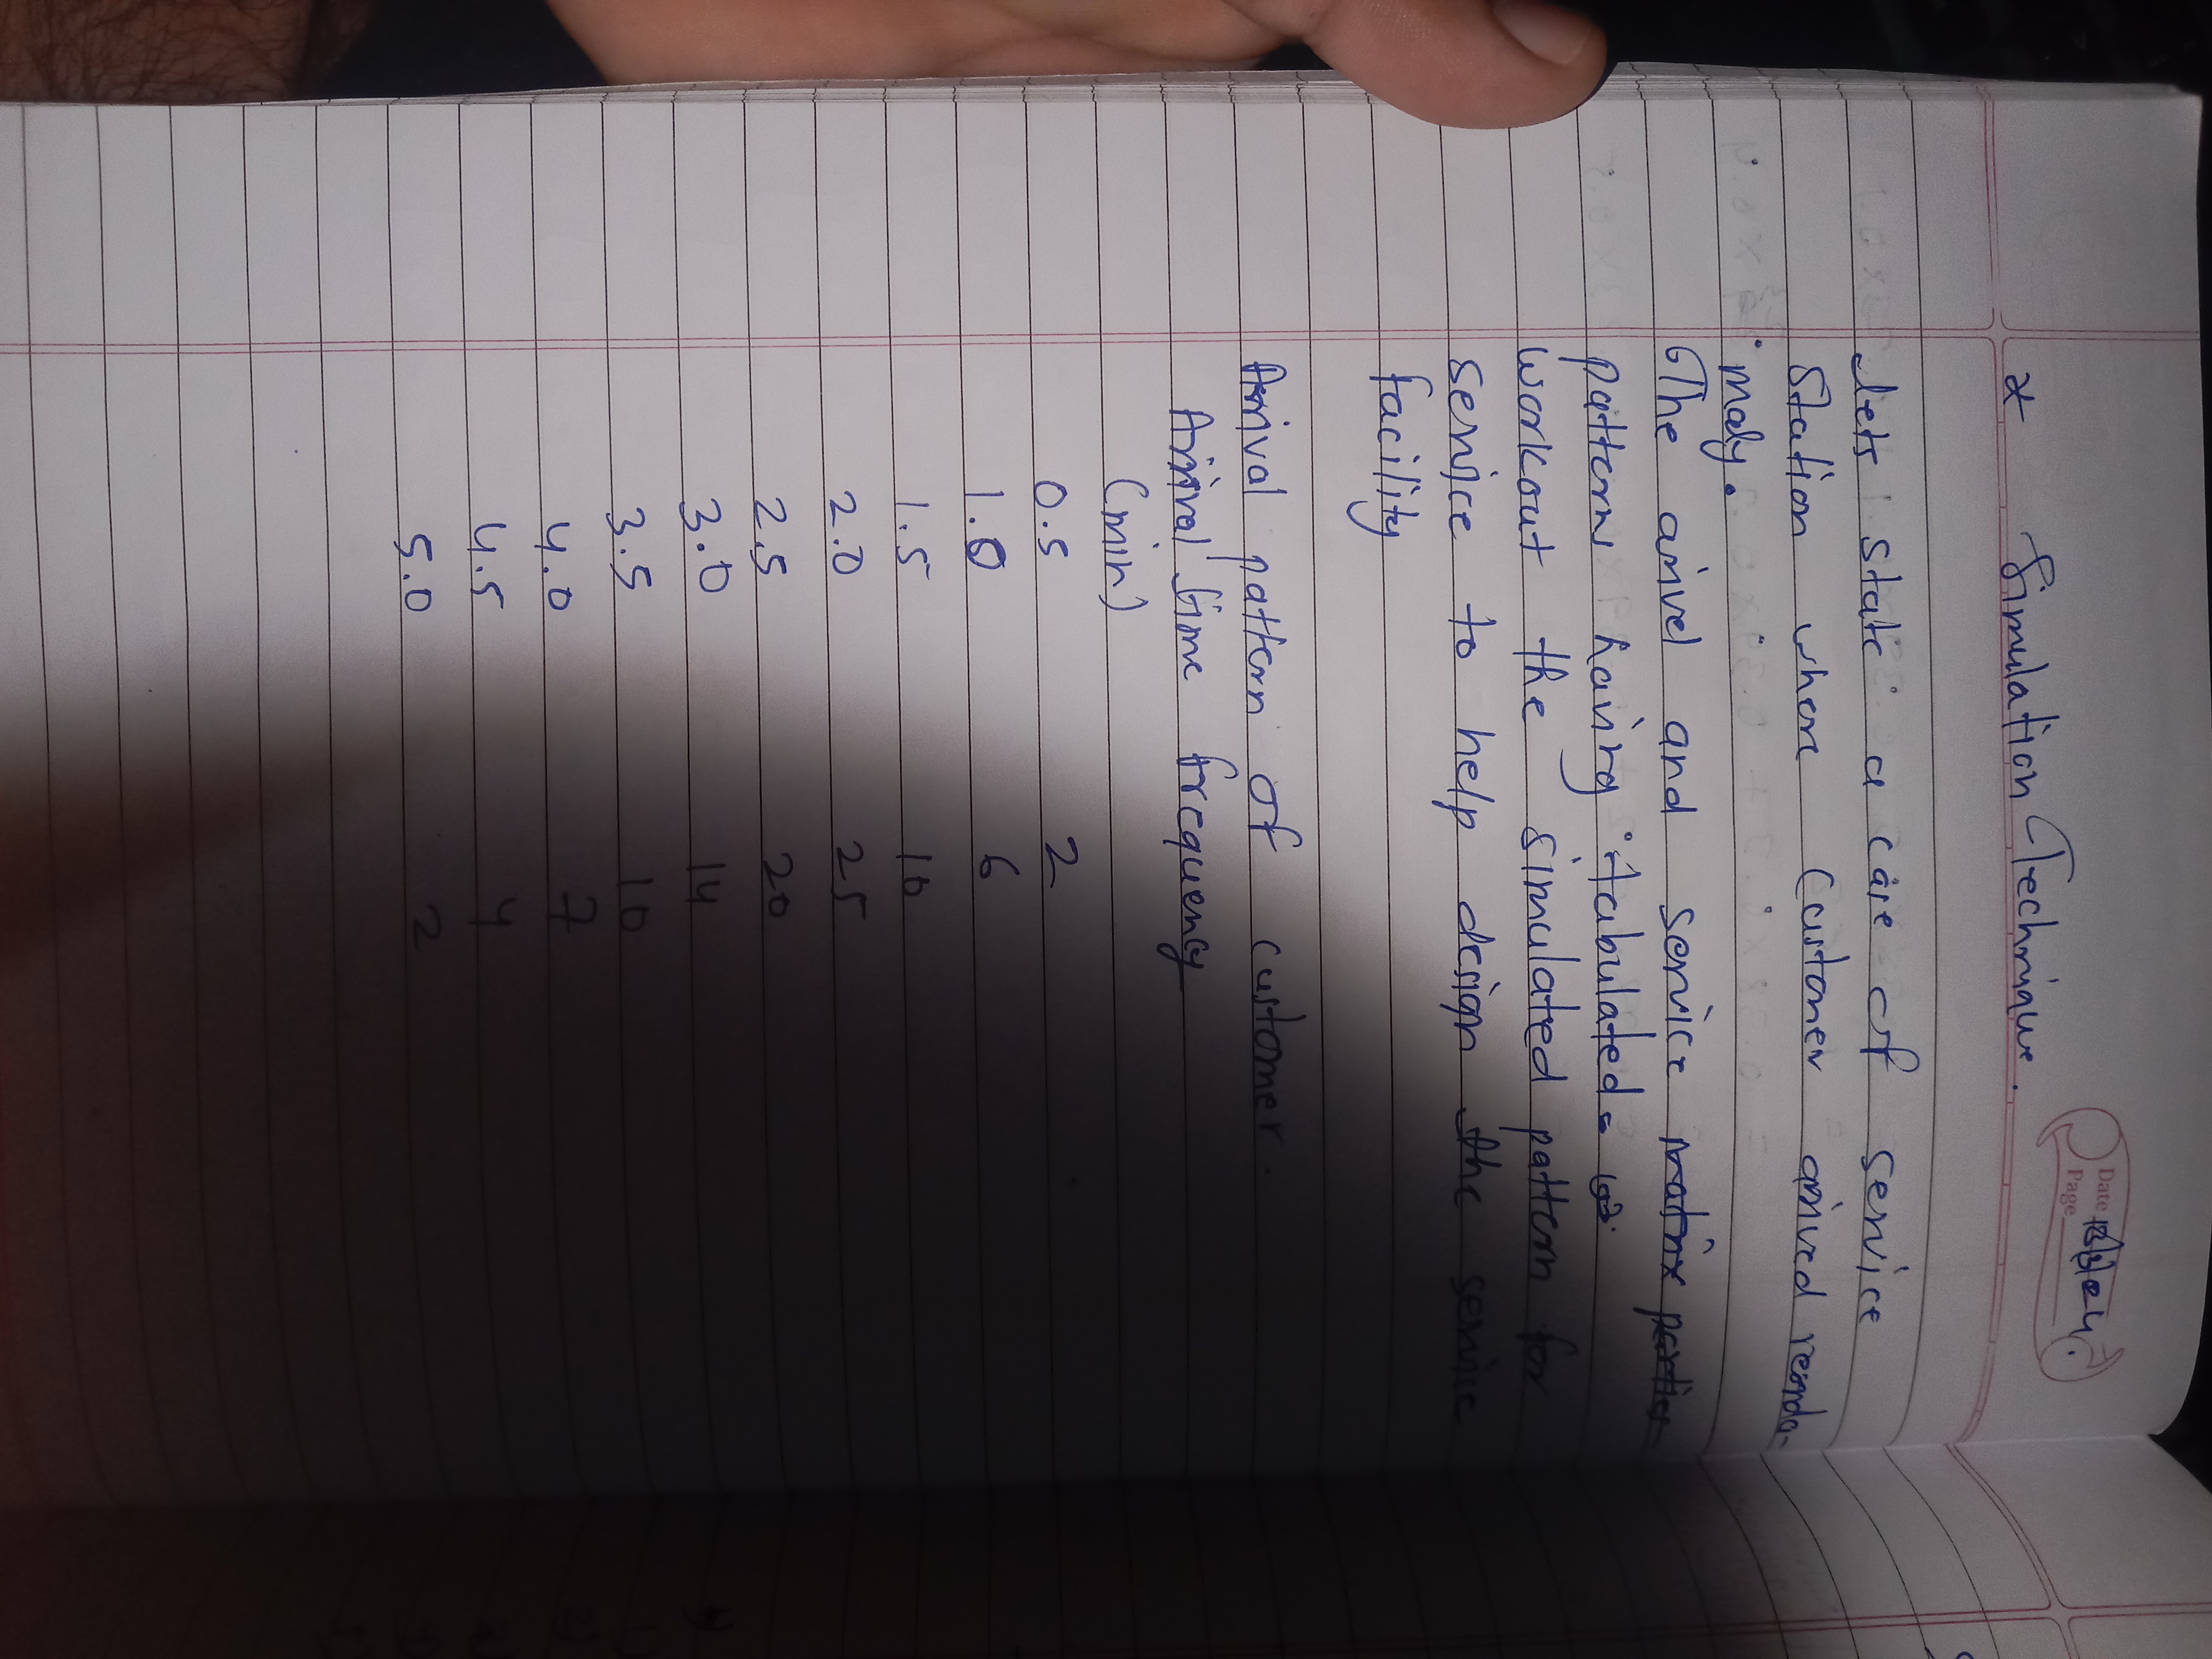 Date
Page
* Simulation Technique.
Lets state a case of service
Station where Customer arived renda-
mady.
The arivel and service matrix
pattern having itabulated
workout the simulated pattern for
service to help design the service
facility
Arrival pattern of customer.
Arrival time frequency
(min)
0.5 2
1.0 6
1.5 10
2.0 25
2.5 20
3.0 14
3.5 10
4.0 7
4.5 4
5.0 2